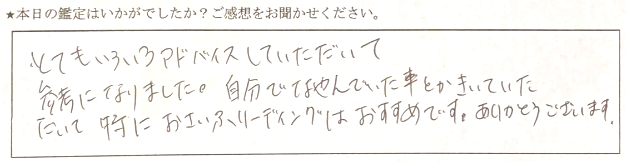 ★本日の鑑定はいかがでしたか?ご感想をお聞かせください。
とてもいろいろアドバイスしていただいて
参考になりました。自分でなやんでいた事とかきいていた
だいて 特に おさいふリーディングは おすすめです。ありがとうございます。